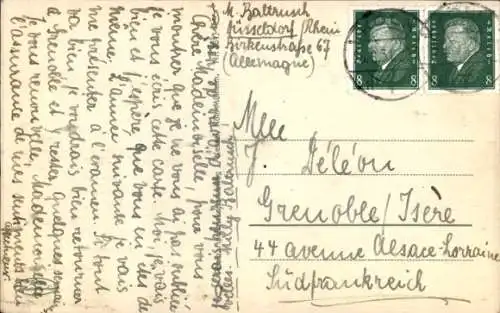 M. Baltrusch
Düsseldorf/Rhein
Birkenstraße 67
(Allemagne)
Deutsches Reich
8 8
Deutsches Reich
8 8
Mlle
J. Déléon
Grenoble/Isère
44 avenue Alsace-Lorraine
Südfrankreich
Chère Mademoiselle, pour vous
montrer que je ne vous ai pas oublié
je vous écris cette carte. Moi, je vais
bien et j'espère que vous en êtes de
même. L'année suivante je vais
me présenter à l'examen. Si tout
va bien je voudrais bien retourner
à Grenoble et y rester quelques semaines
Je vous renouvelle, Mademoiselle
l'assurance de mes sentiments